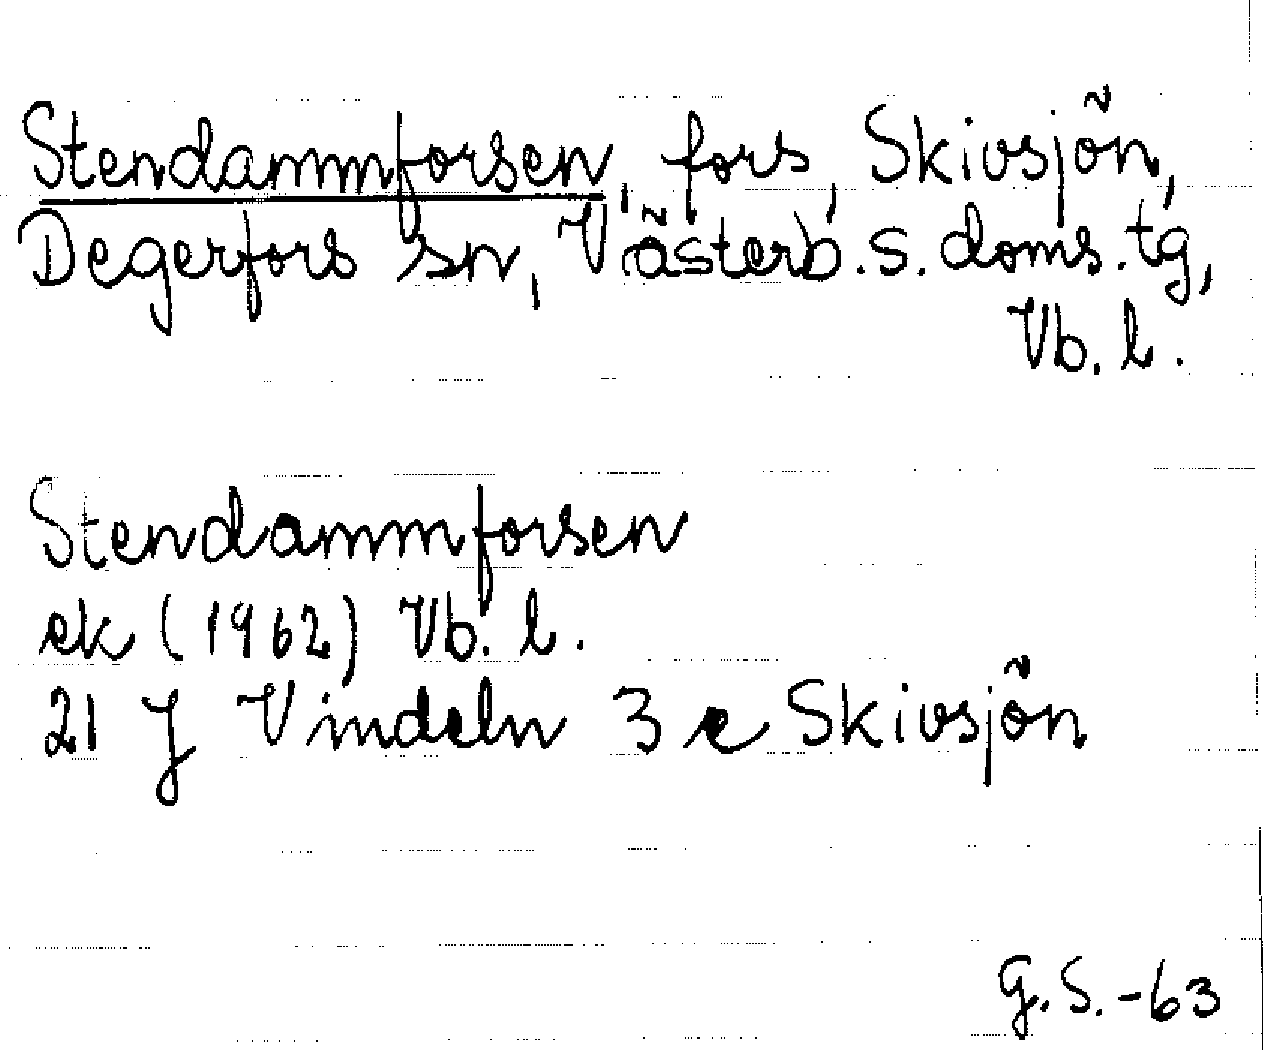 Stendammforsen, fors, Skivsjön,
Degerfors sn, Västerb.s.doms.tg,
Vb.l.
Stendammforsen
ek (1962) Vb.l.
21 J Vindeln 3 c Skivsjön
G.S.-63